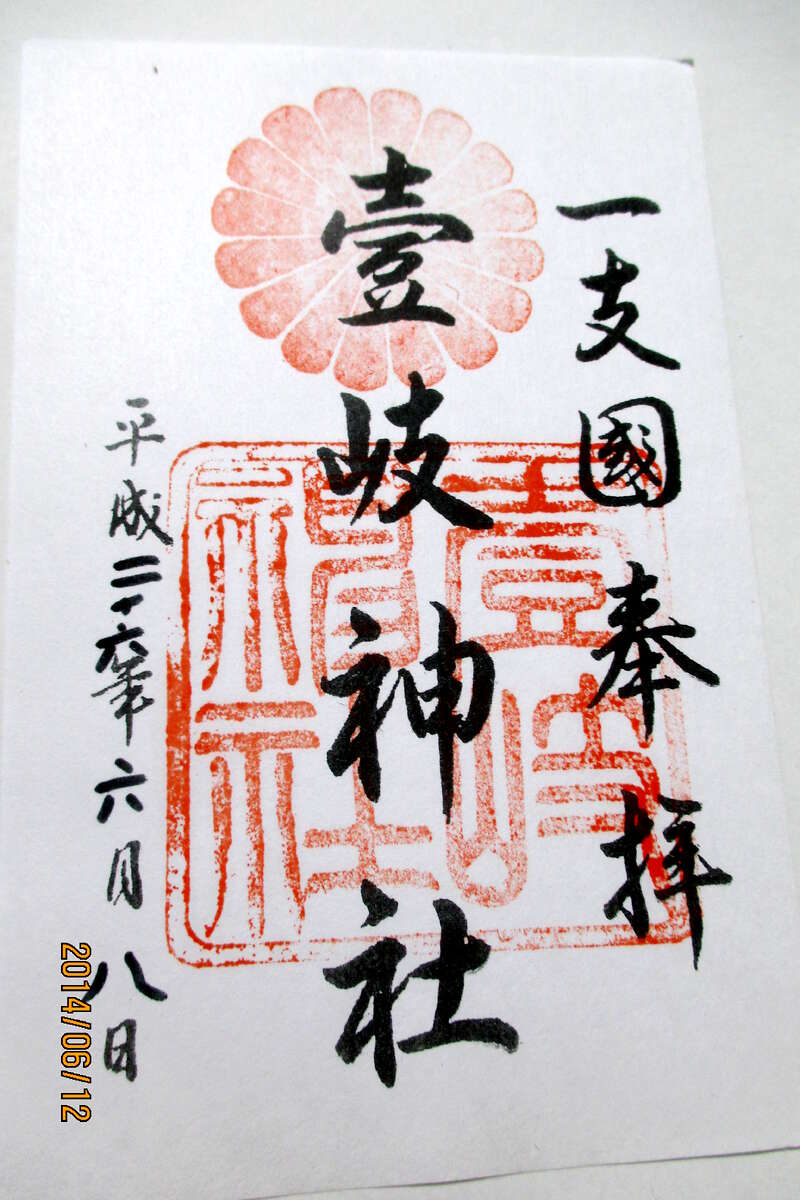 一支國奉拝
壹岐神社
壹岐神社
平成二十六年六月八日
2014/06/12